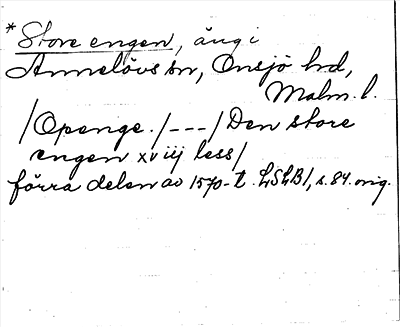 * Store engen, äng i
Annelövs sn, Onsjö hd,
Malm. l.
/Openge./---/Den store
engen xviij less/
förra delen av 1570-t. LSLB1, s. 84. orig.